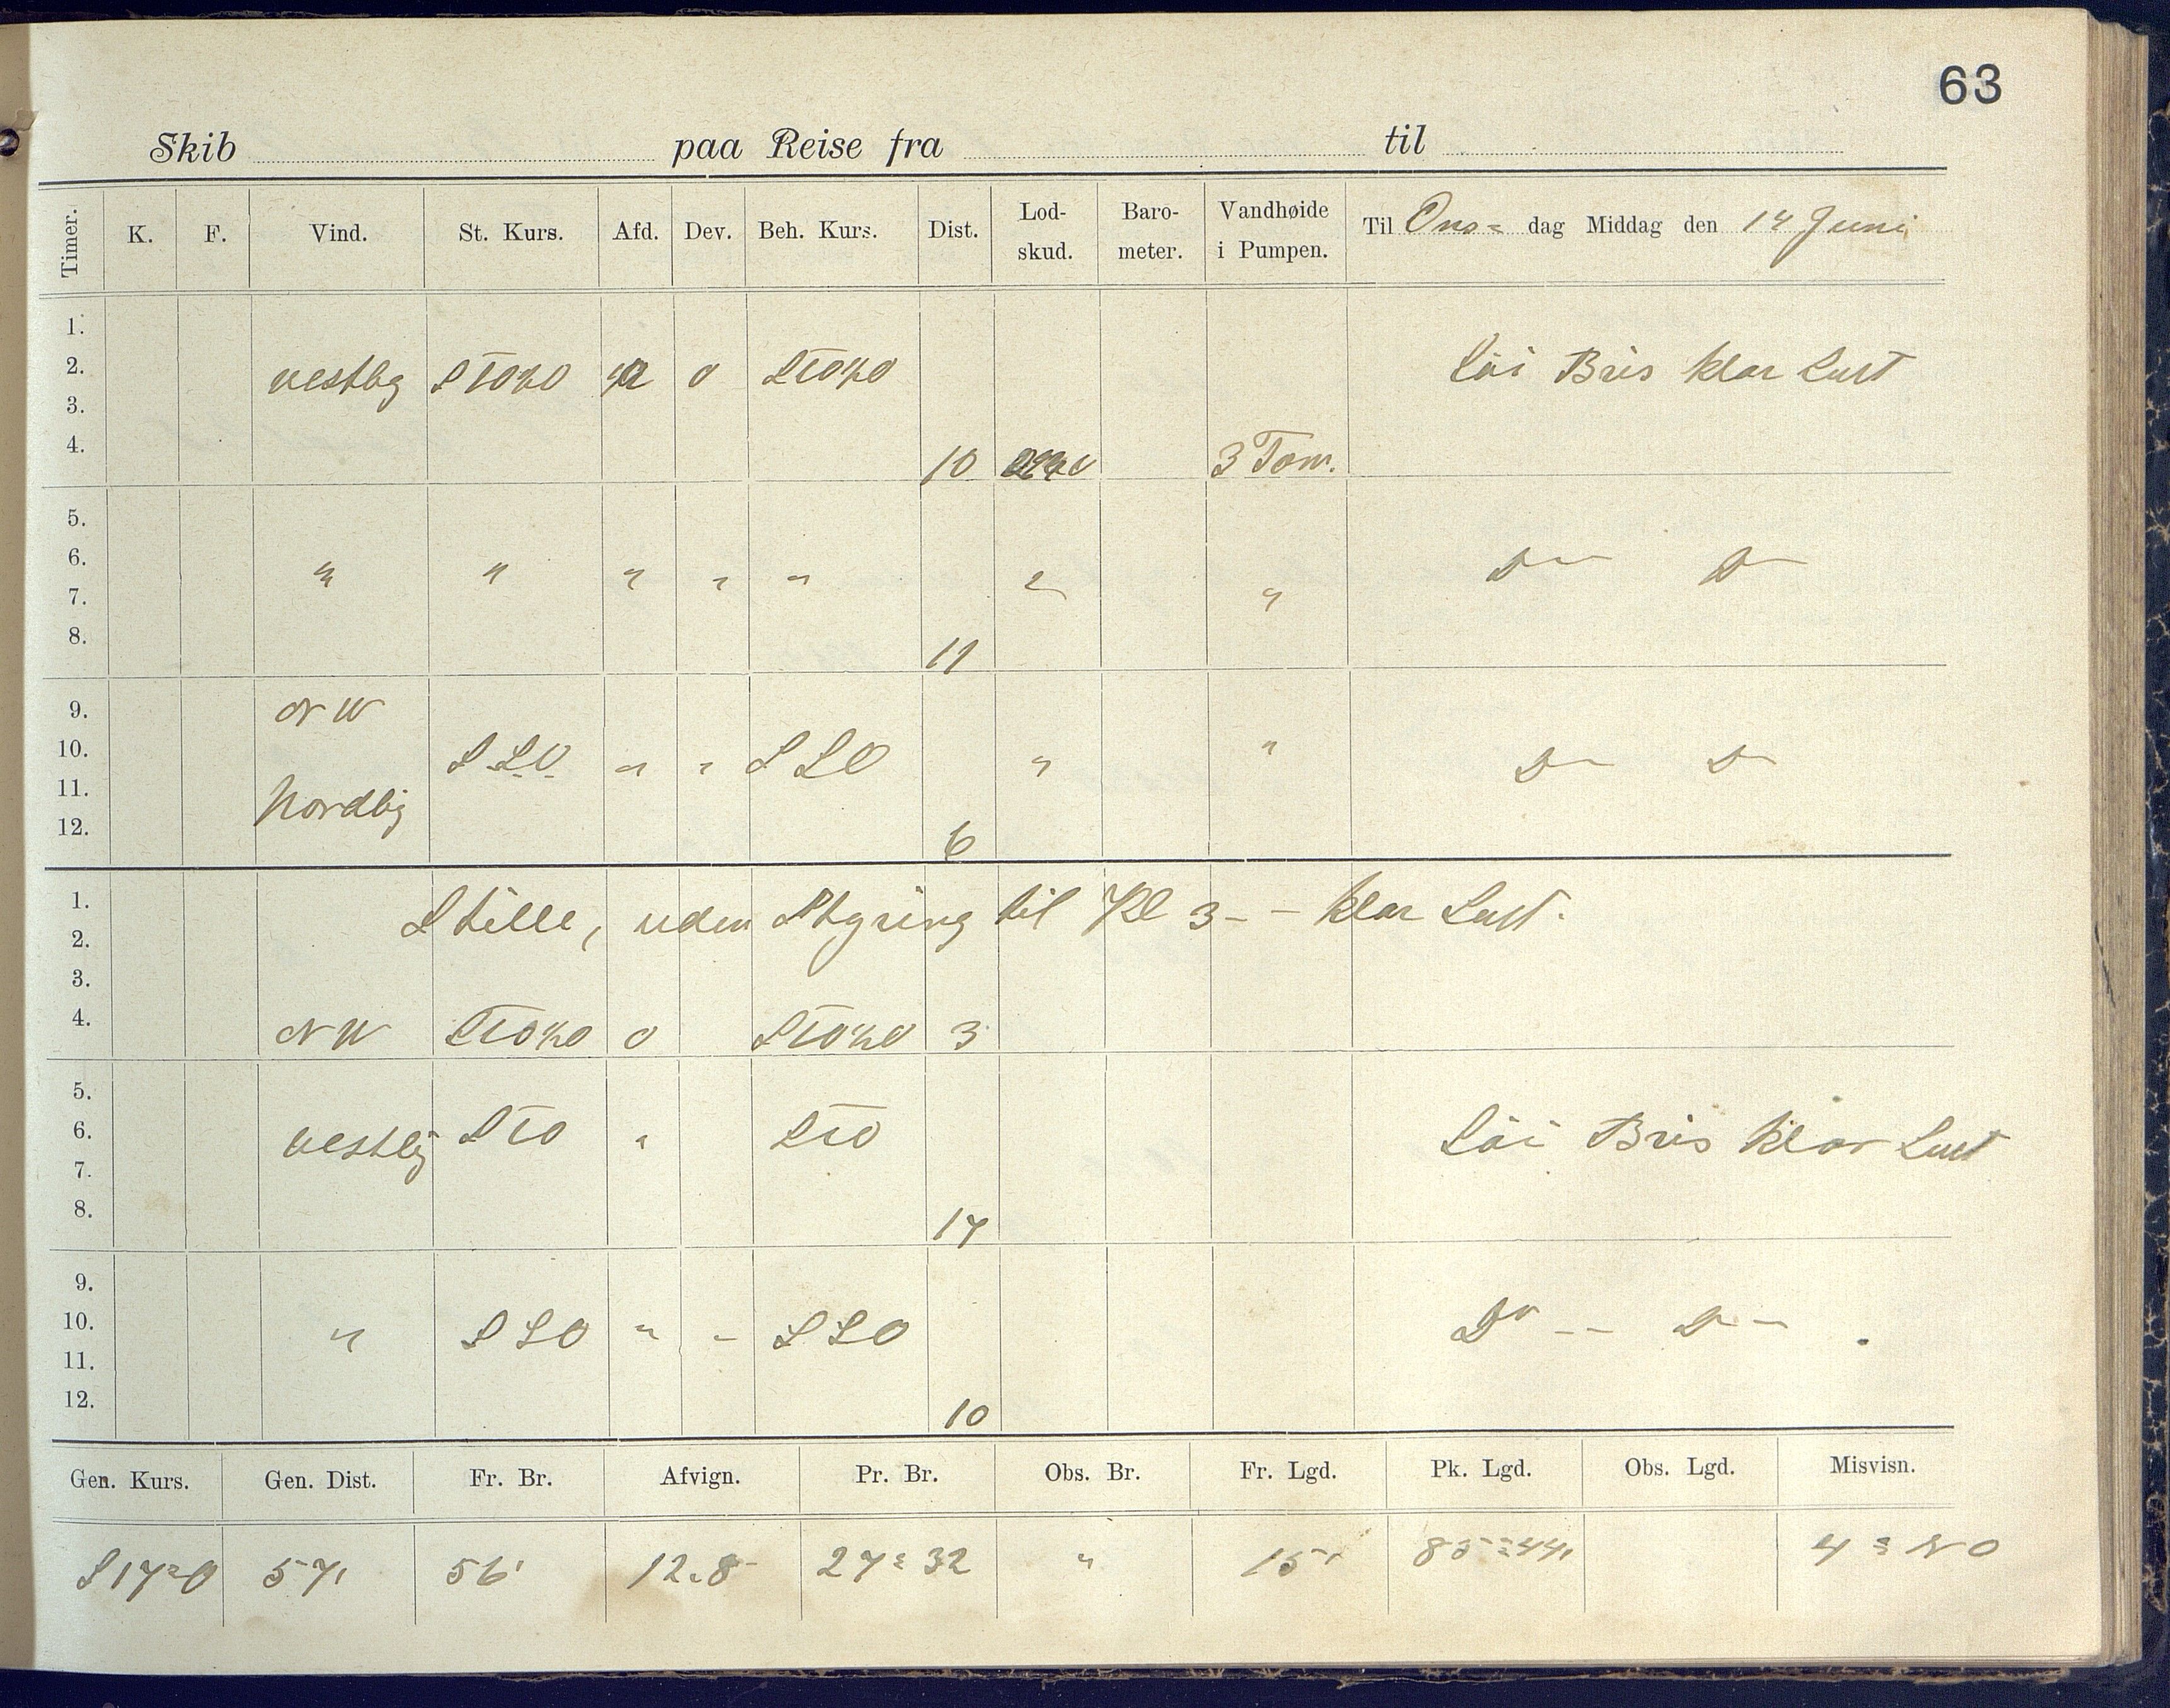 63
Skib paa Reise fra til
Timer. K. F. Vind. St. Kurs. Afd. Dev. Beh. Kurs. Dist. Lod-skud. Baro-meter. Vandhøide i Pumpen. Til Ons= dag Middag den 14 Juni
1.
2. vestlig StO½O 0 StO½O Löi Bris klar Luft
3.
4. 10 3 Tom.
5.
6. " " " " " " " D— D—
7.
8. 11
9. NW
10. SSO " " SSO " " D— D—
11. Nordlig
12. 6
1. Stille, uden Styring til Kl 3 - - klar Luft.
2.
3.
4. NW StO½O 0 StO½O 3
5.
6. vestlig StO " StO Löi Bris klar Luft
7.
8. 17
9.
10. " SSO " - SSO Do -- D--
11.
12. 10
Gen. Kurs. Gen. Dist. Fr. Br. Afvign. Pr. Br. Obs. Br. Fr. Lgd. Pk. Lgd. Obs. Lgd. Misvisn.
S17°O 57' 56' 12.8 27° 32 " 15' 85°44' 4° NO